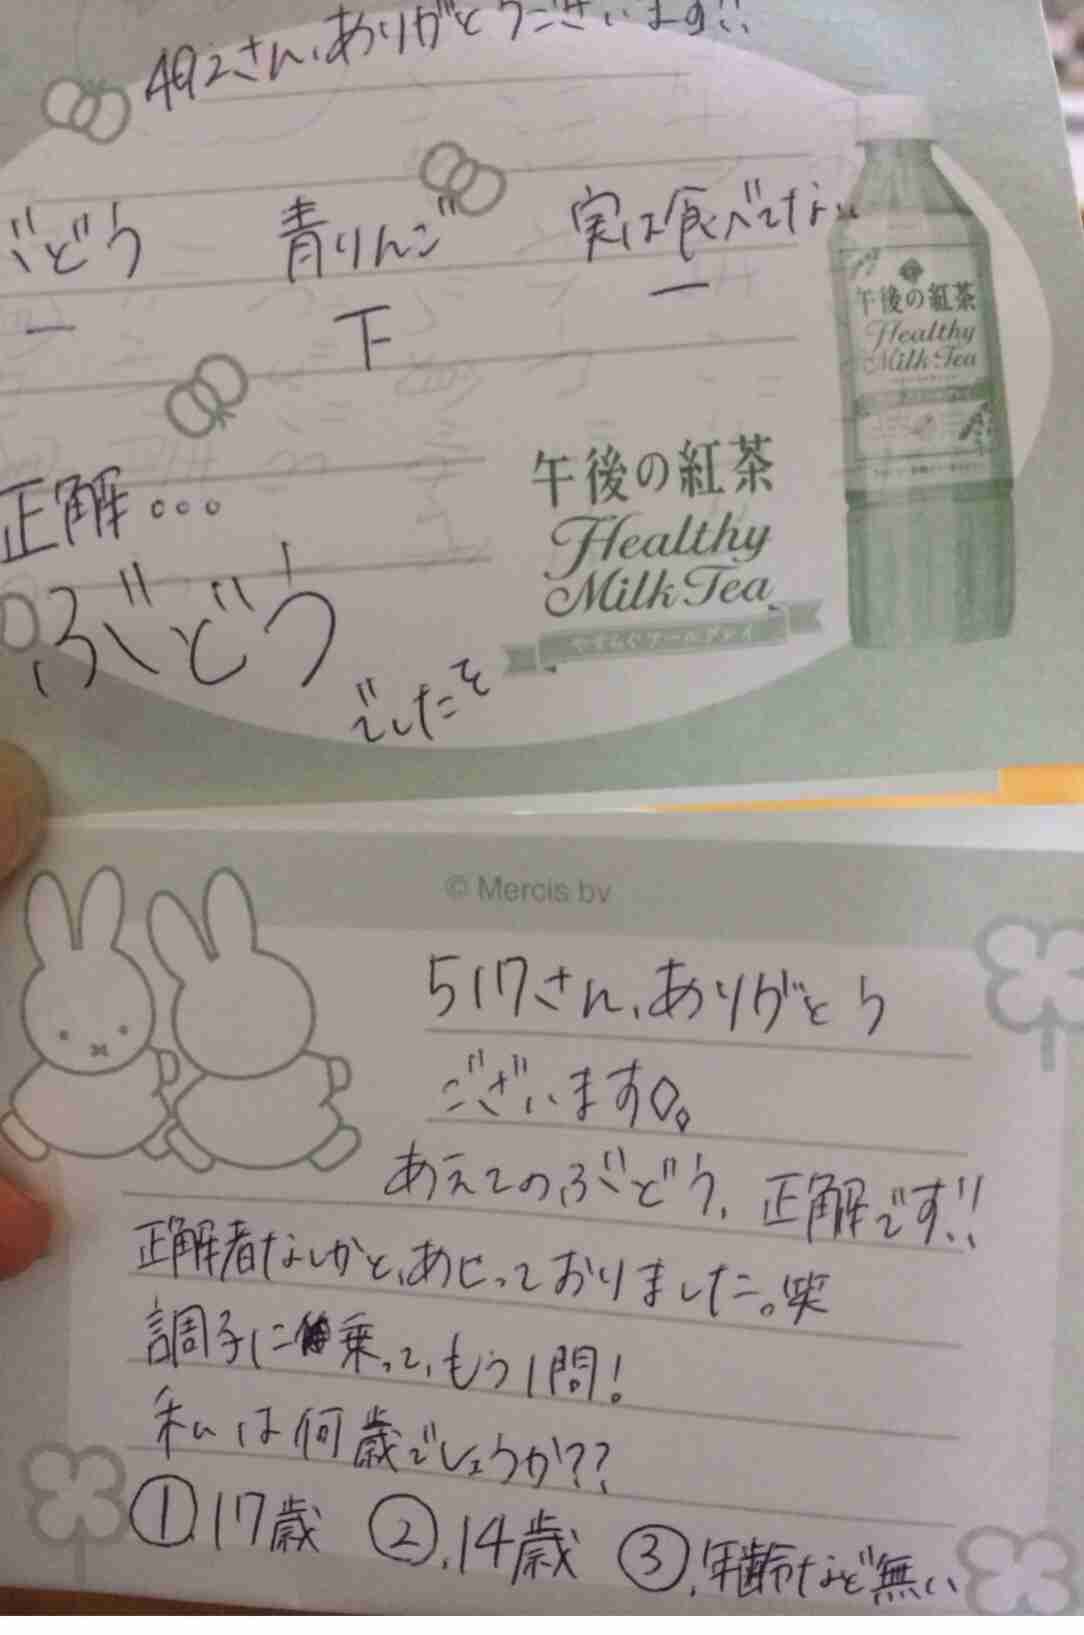 492さん、ありがとうございます!!
ぶどう 青りんご 実は食べてない
一 下 一
正解...
ぶどう
でしたそ
午後の紅茶
Healthy
Milk Tea
午後の紅茶
Healthy
Milk Tea
やすらぐアールグレイ
© Mercis bv
517さん、ありがとう
ございます。
あえてのぶどう、正解です!!
正解者なしかと、あせっておりました。笑
調子に乗って、もう1問!
私は何歳でしょうか??
①.17歳 ②.14歳 ③.年齢など無い